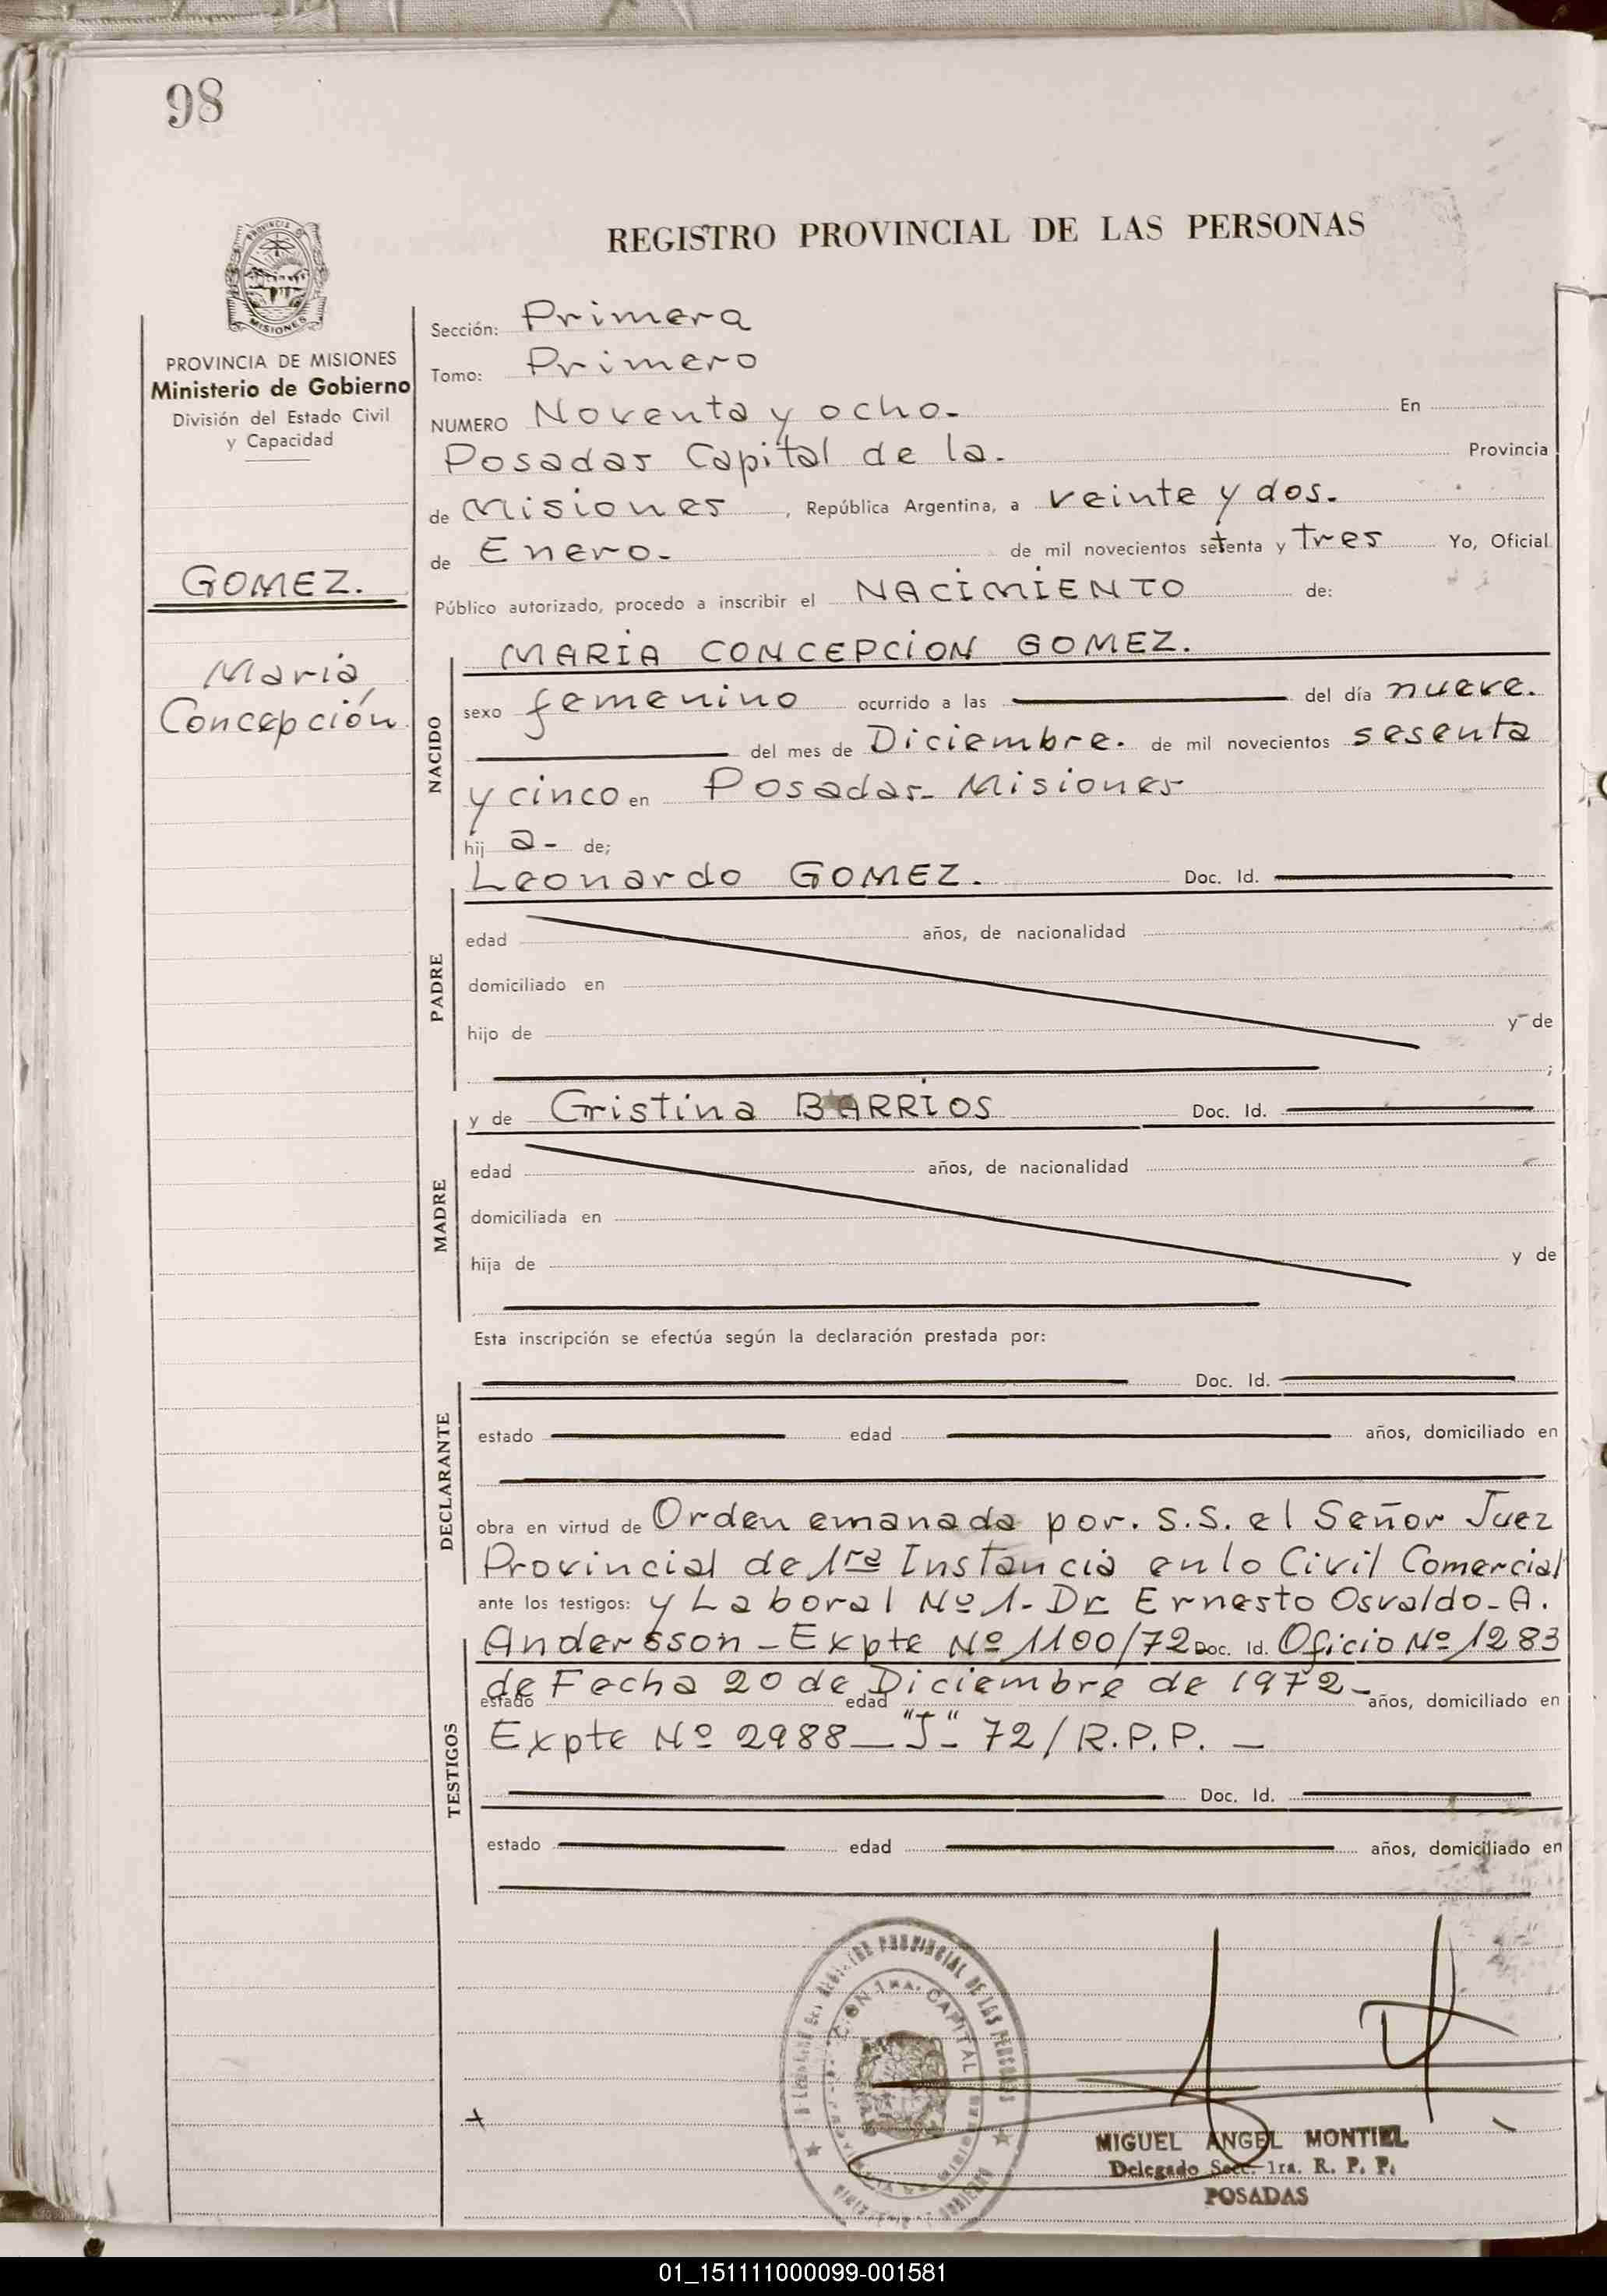 98
REGISTRO PROVINCIAL DE LAS PERSONAS
PROVINCIA DE MISIONES
Ministerio de Gobierno
División del Estado Civil
y Capacidad
GOMEZ.
Maria
Concepción
Sección: Primera
Tomo: Primero
NUMERO Noventa y ocho.- En
Posadas Capital de la. Provincia
de Misiones, República Argentina, a veinte y dos.
de Enero.- de mil novecientos setenta y tres Yo, Oficial
Público autorizado, procedo a inscribir el NACIMIENTO de:
MARIA CONCEPCION GOMEZ.
NACIDO
sexo femenino ocurrido a las del día nueve.
del mes de Diciembre. de mil novecientos sesenta
y cinco en Posadas- Misiones
hij a- de;
PADRE
Leonardo GOMEZ. Doc. Id.
edad años, de nacionalidad
domiciliado en
hijo de y de
;
MADRE
y de Cristina BARRIOS Doc. Id.
edad años, de nacionalidad
domiciliada en
hija de y de
Esta inscripción se efectúa según la declaración prestada por:
DECLARANTE
Doc. Id.
estado edad años, domiciliado en
obra en virtud de Orden emanada por. S.S. el Señor Juez
Provincial de 1ra Instancia en lo Civil Comercial
ante los testigos: y Laboral Nº 1- Dr Ernesto Osvaldo-A.
TESTIGOS
Andersson - Expte Nº 1100/72 Doc. Id. Oficio Nº 1283
de Fecha 20 de Diciembre de 1972-
estado edad años, domiciliado en
Expte Nº 2988-"J"- 72/R.P.P. -
Doc. Id.
estado edad años, domiciliado en
MIGUEL ANGEL MONTIEL
Delegado Secc. 1ra. R. P. P.
POSADAS
01_151111000099-001581